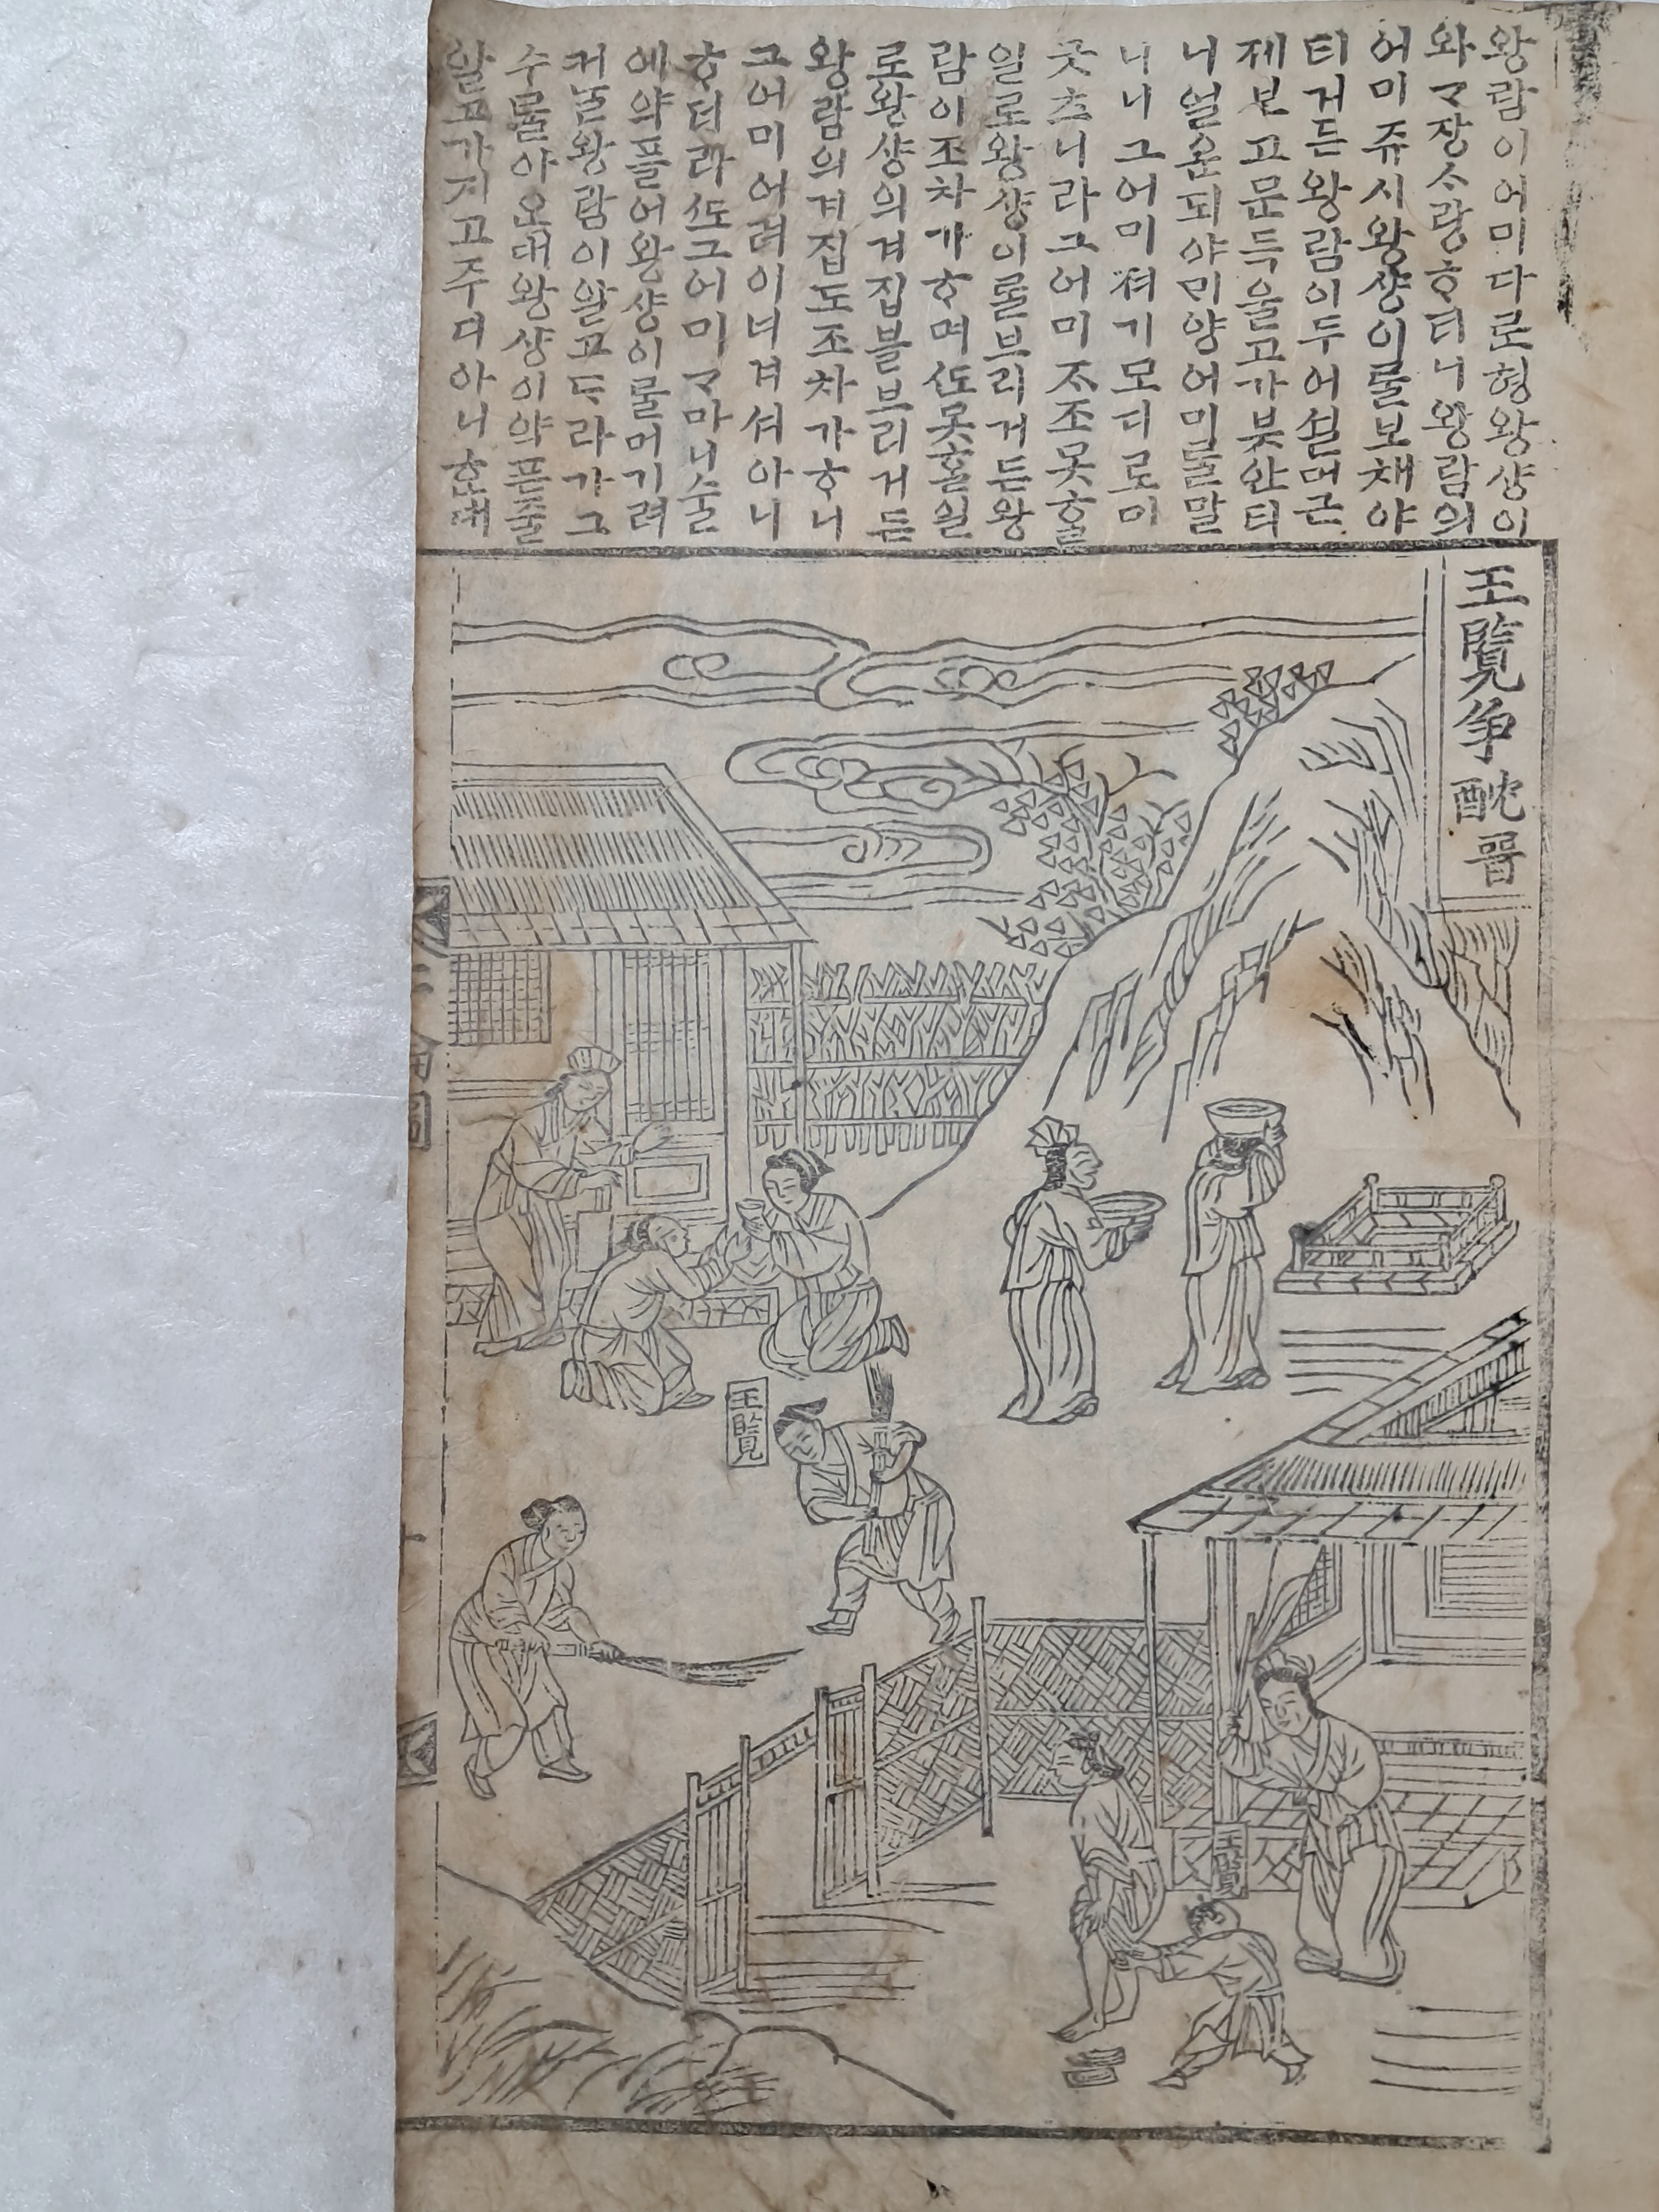 왕람이어미다로형왕샹이
와ᄀᆞ장ᄉᆞ랑ᄒᆞ더니왕람의
어미쥬시왕샹이ᄅᆞᆯ보채야
티거든왕람이두어설머근
제보고문득울고가붓안터
니얼운되야ᄆᆡ양어미ᄅᆞᆯ말
니니그어미져기모디로미
긋츠니라그어미ᄌᆞ조못ᄒᆞᆯ
일로왕샹이ᄅᆞᆯ브리거든왕
람이조차가ᄒᆞ며ᄯᅩ못ᄒᆞᆯ일
로왕샹의겨집블브리거든
왕람의겨집도조차가ᄒᆞ니
그어미어려이녀겨셔아니
ᄒᆞ더라ᄯᅩ그어미ᄀᆞ마니술
에약플어왕샹이ᄅᆞᆯ머기려
커ᄂᆞᆯ왕람이알고ᄃᆞ라가그
수ᄅᆞᆯ아오대왕샹이약픈줄
알고가지고주디아니ᄒᆞᆫ대
王覽争酖 晉
王覽
王覽